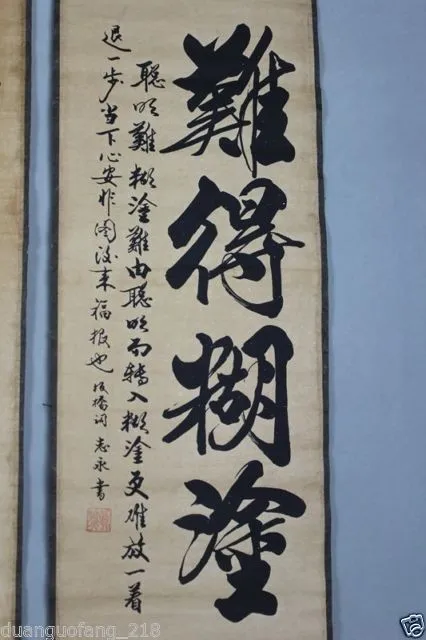 難得糊塗
聰明難糊塗難由聰明而轉入糊塗更難放一着
退一步當下心安非圖後来福报也板橋詞志永書
duanguofang_218